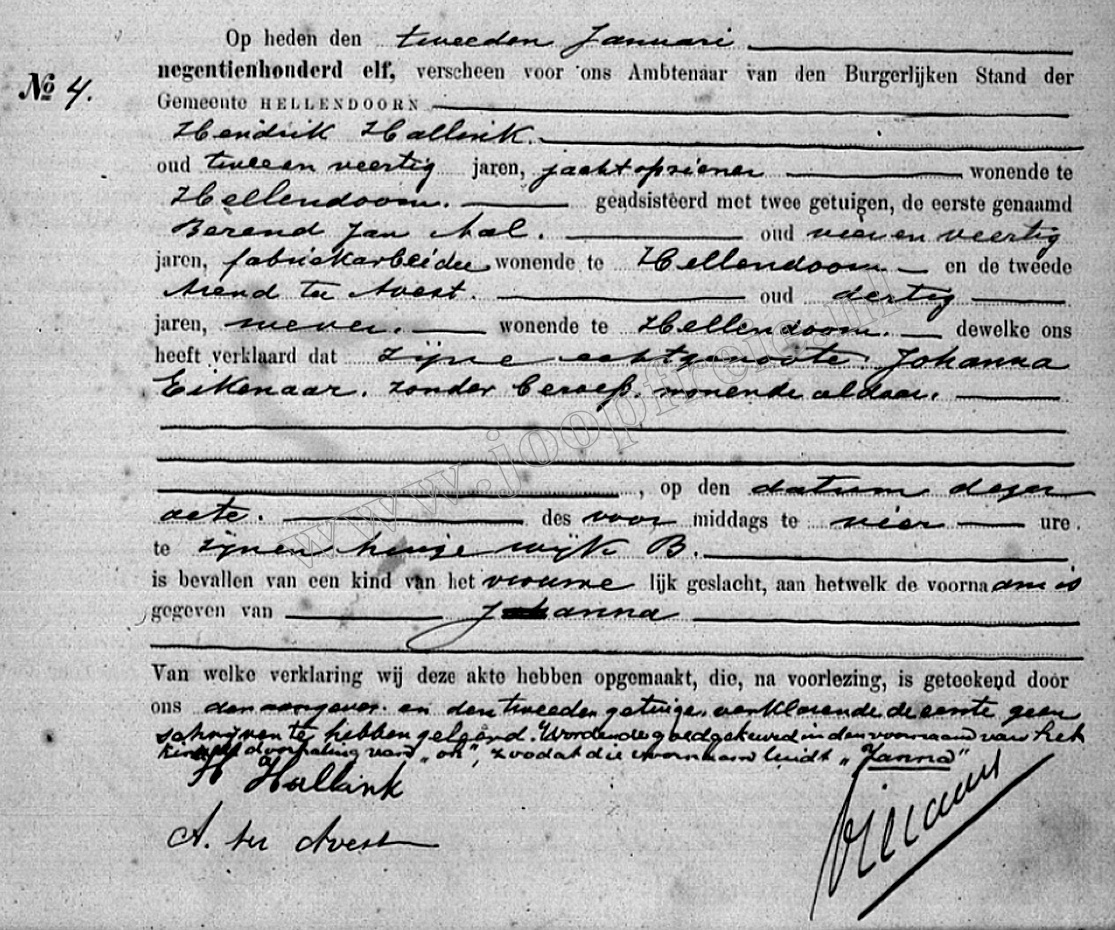 Op heden den tweeden Januari
negentienhonderd elf, verscheen voor ons Ambtenaar van den Burgerlijken Stand der
No 4.
Gemeente HELLENDOORN
Hendrik Hallink.
oud twee en veertig jaren, jachtopziener wonende te
Hellendoorn. geadsisteerd met twee getuigen, de eerste genaamd
Berend Jan Mal. oud vier en veertig
jaren, fabriekarbeider wonende te Hellendoorn en de tweede
Arend ter Avest. oud dertig
jaren, wever. wonende te Hellendoorn. dewelke ons
heeft verklaard dat zijne echtgenoote Johanna
Eikenaar, zonder beroep, wonende aldaar,
, op den datum dezer
acte. des voor middags te vier ure.
te zijnen huize wijk B.
is bevallen van een kind van het vrouwe lijk geslacht, aan hetwelk de voorna am is
gegeven van Johanna
Van welke verklaring wij deze akte hebben opgemaakt, die, na voorlezing, is geteekend door
ons den aangever en den tweeden getuige, verklarende de eerste geen
schrijven te hebben geleerd. Wordende goedgekeurd in den voornaam van het
kind de doorhaling van "oh", zoodat die voornaam luidt "Janna"
H Hallink
A. ter Avest
www.joopfreie.nl